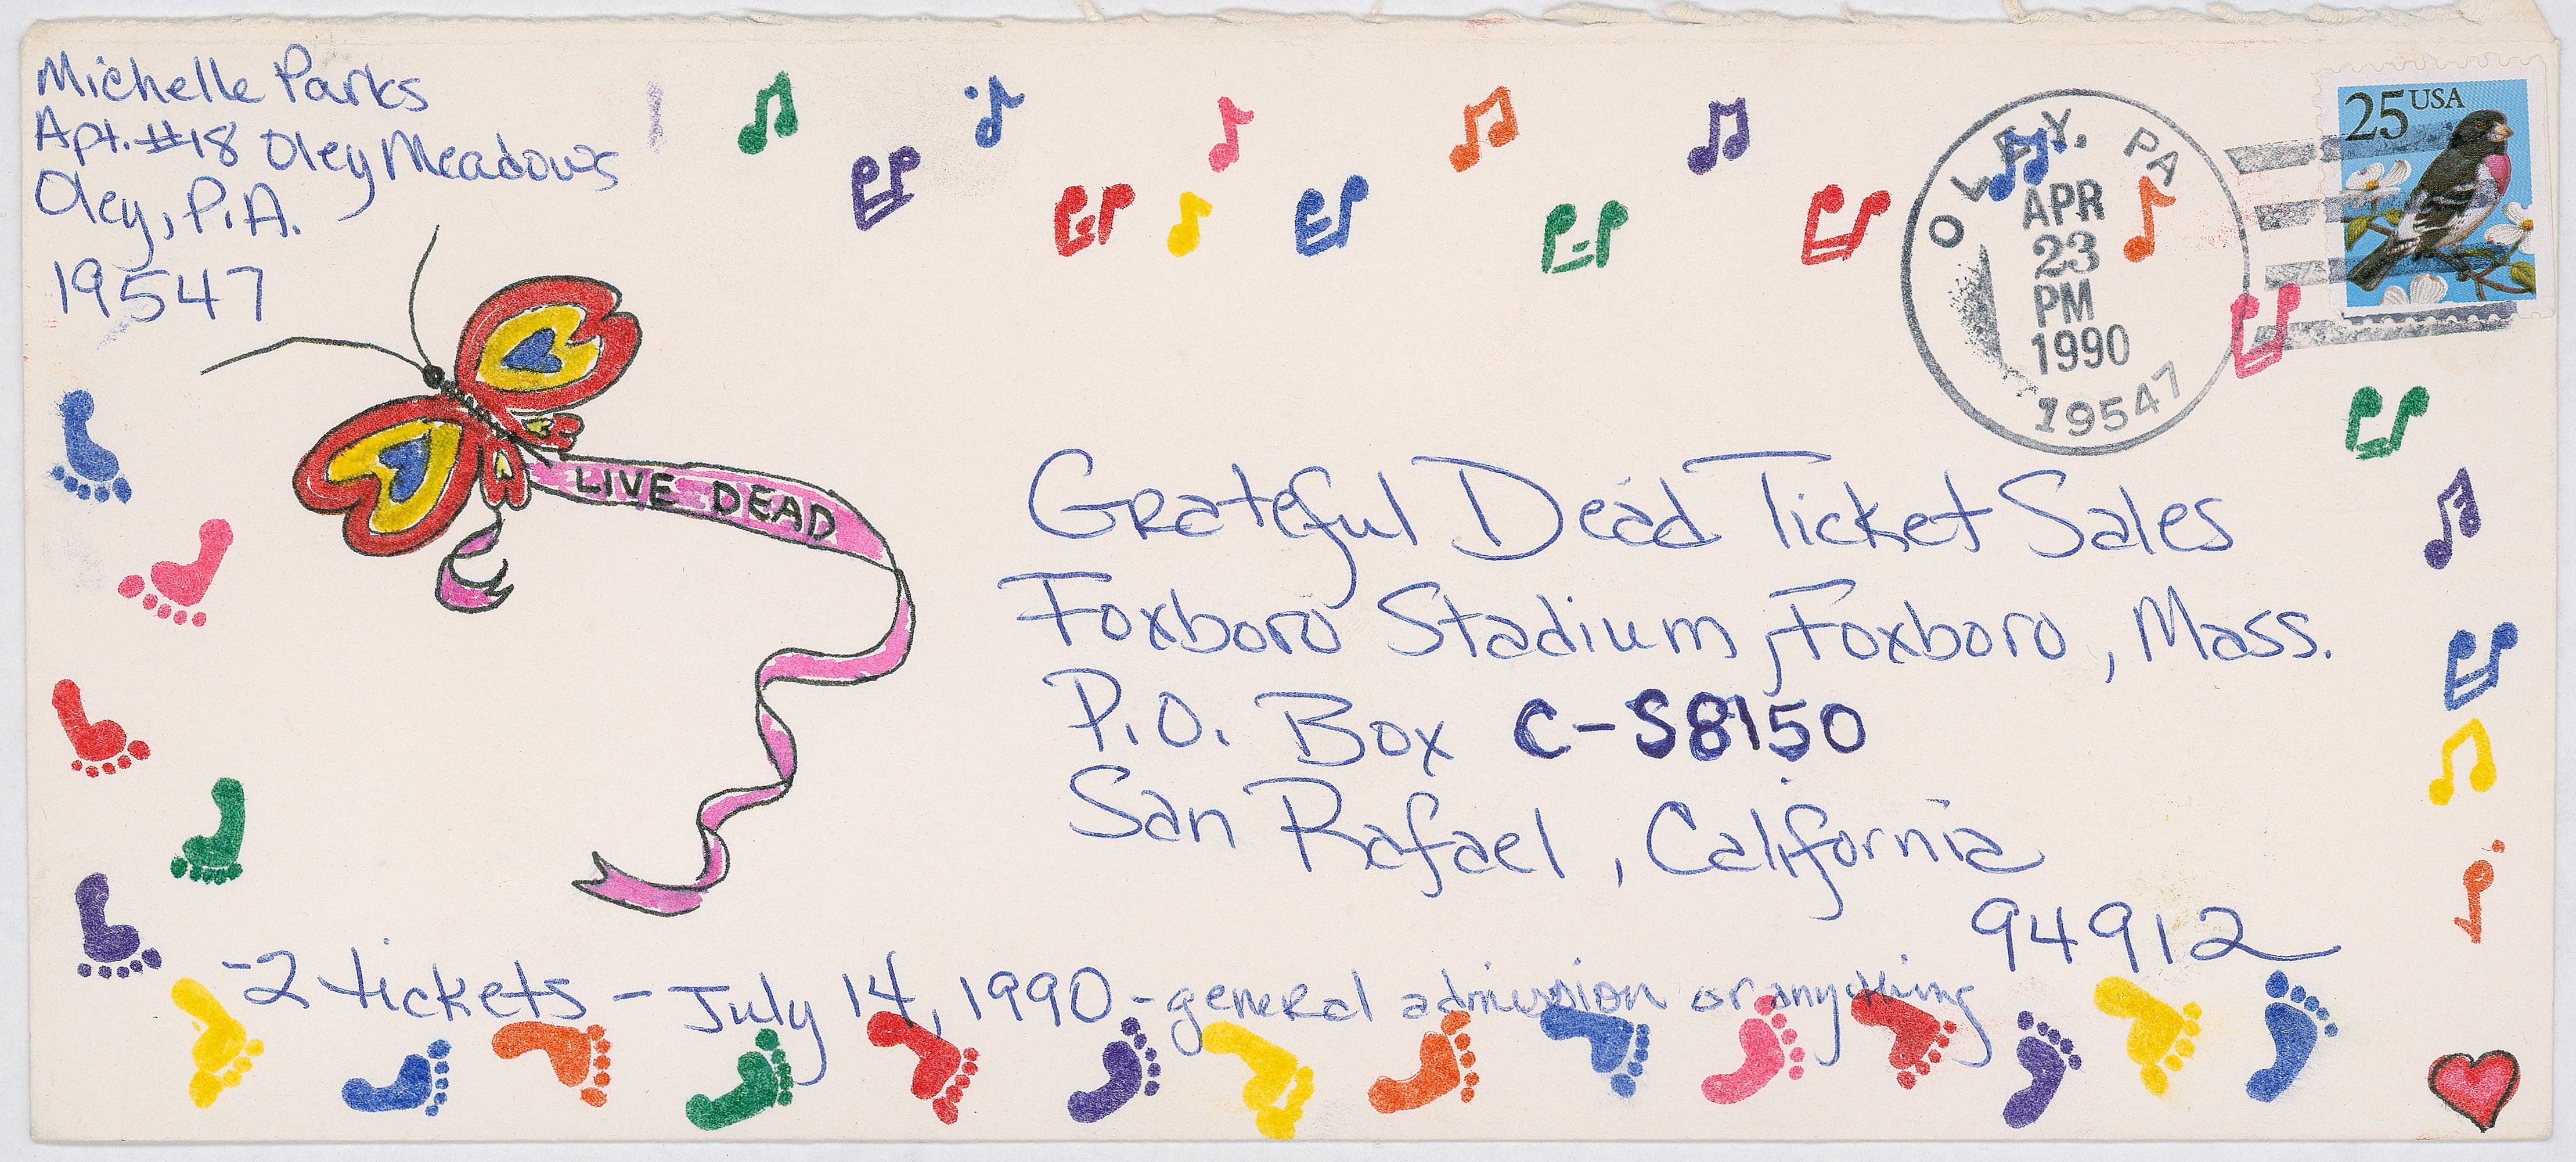 Michelle Parks
Apt. #18 Oley Meadows
Oley, P.A.
19547
OLEY, PA
APR
23
PM
1990
19547
25 USA
LIVE DEAD
Grateful Dead Ticket Sales
Foxboro Stadium, Foxboro, Mass.
P.O. Box C-S8150
San Rafael, California
94912
-2 tickets - July 14, 1990 - general admission or anything